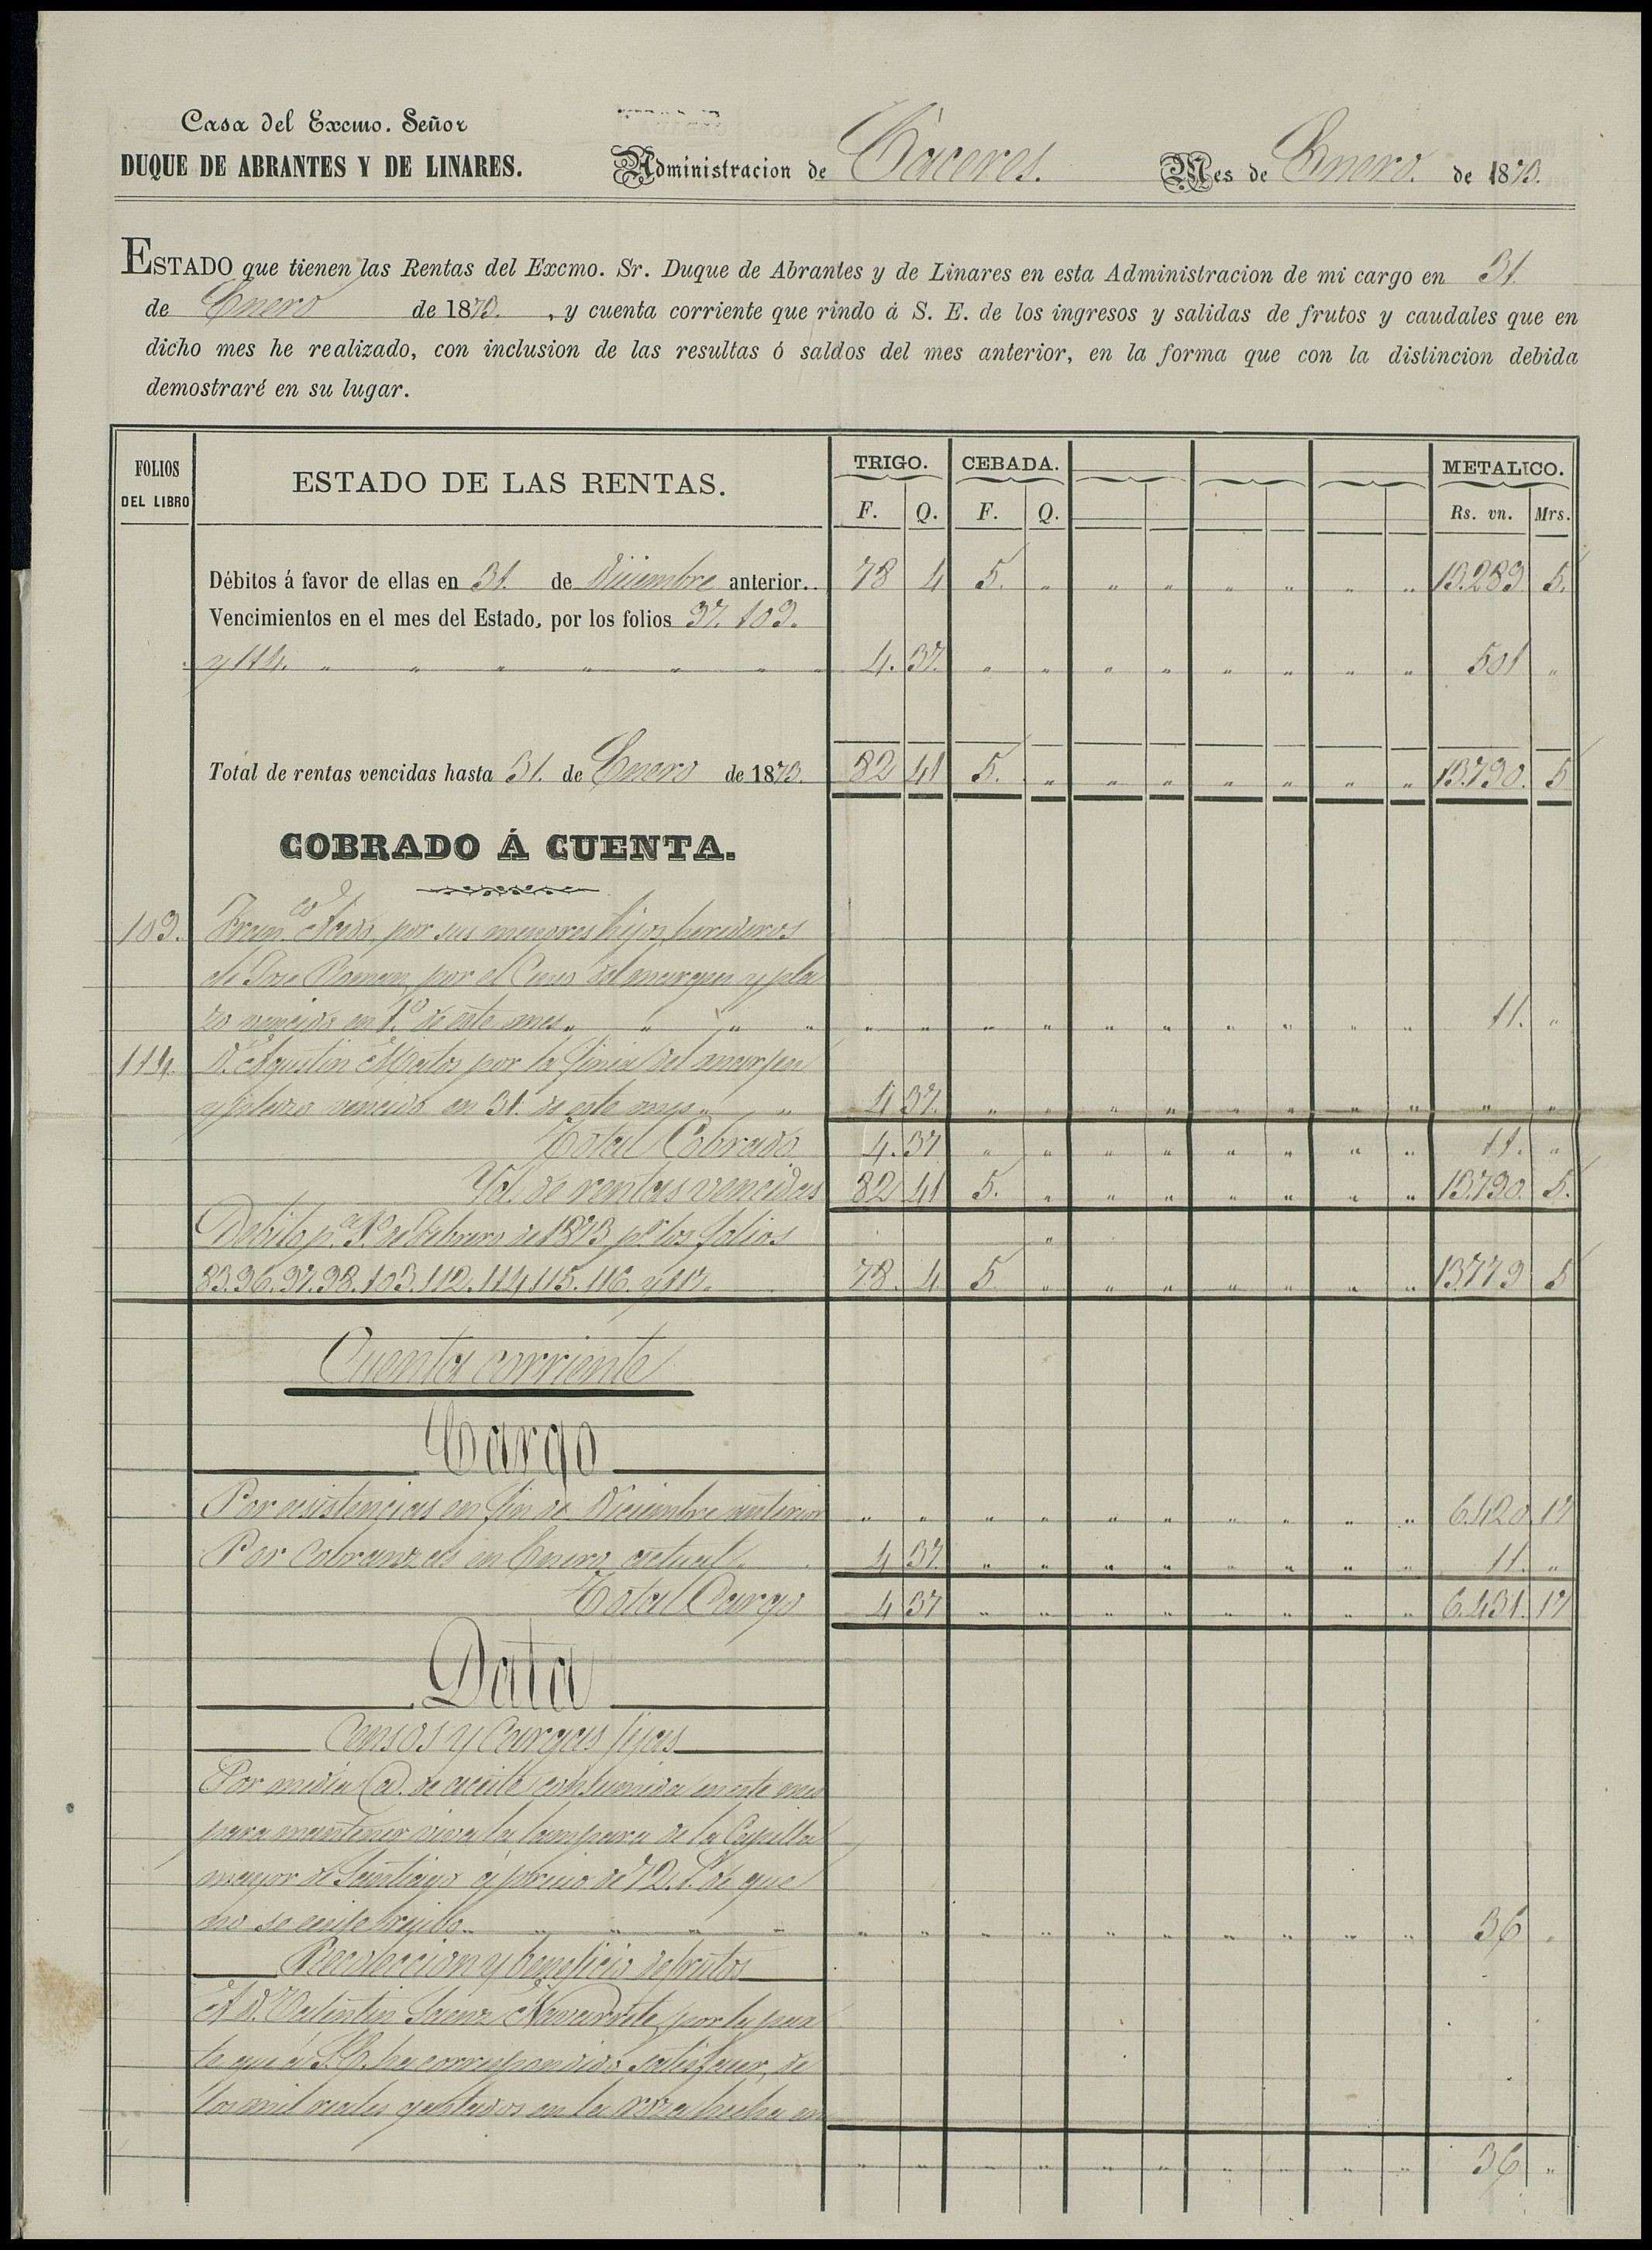 Casa del Excmo. Señor
DUQUE DE ABRANTES Y DE LINARES.
Administracion de Cáceres. Mes de Enero. de 1873.
ESTADO que tienen las Rentas del Excmo. Sr. Duque de Abrantes y de Linares en esta Administracion de mi cargo en 31.
de Enero de 1873. , y cuenta corriente que rindo á S. E. de los ingresos y salidas de frutos y caudales que en
dicho mes he realizado, con inclusion de las resultas ó saldos del mes anterior, en la forma que con la distincion debida
demostraré en su lugar.
FOLIOS DEL LIBRO ESTADO DE LAS RENTAS. TRIGO. CEBADA. METALICO.
F. Q. F. Q. Rs. vn. Mrs.
Débitos á favor de ellas en 31. de Diciembre anterior.. 78 4 5. " " " " " " " 13.289 5.
Vencimientos en el mes del Estado, por los folios 97. 109.
y 114. " " " " " " " 4. 37. " " " " " " " " 501 "
Total de rentas vencidas hasta 31. de Enero de 1873. 82 41 5. " " " " " " " 13.790. 5
COBRADO Á CUENTA.
109. Fran.co Acedo, por sus menores hijos herederos
de Jose Roman, por el Censo del margen y pla
zo vencido en 1.º de este mes " " " " " " " " " " " " " " 11. "
114. D. Agustin Matos por la finca del margen
y plazo vencido en 31. de este mes " " 4 37. " " " " " " " " " "
Total Cobrado 4. 37 " " " " " " " " 11. "
Yd. de rentas vencidas 82 41 5. " " " " " " " 13.790. 5.
Debito p.a 1.º de Febrero de 1873 p.r los folios
83. 96. 97. 98. 103. 112. 114. 115. 116. y 117. 78. 4 5 " " " " " " " 13.779 5
Cuenta corriente
Cargo
Por existencias en fin de Diciembre anterior " " " " " " " " " " 6.420 17
Por Cobranzas en Enero actual " 4 37. " " " " " " " " 11. "
Total Cargo 4 37 " " " " " " " " 6.431. 17
Data
Censos y Cargas fijas
Por media @. de aceite consumida en este mes
para mantener viva la lampara de la Capilla
mayor de Santiago á precio de 72. r. de que
no se exije recibo " " " " " " " " " " " " " " 36 "
Recoleccion y beneficio de frutos
A D. Valentin Saenz Navarrete, por la par
te que á S. E. ha correspondido satisfacer, de
los mil reales gastados en la roza hecha en
" " " " " " " " " " 36 "